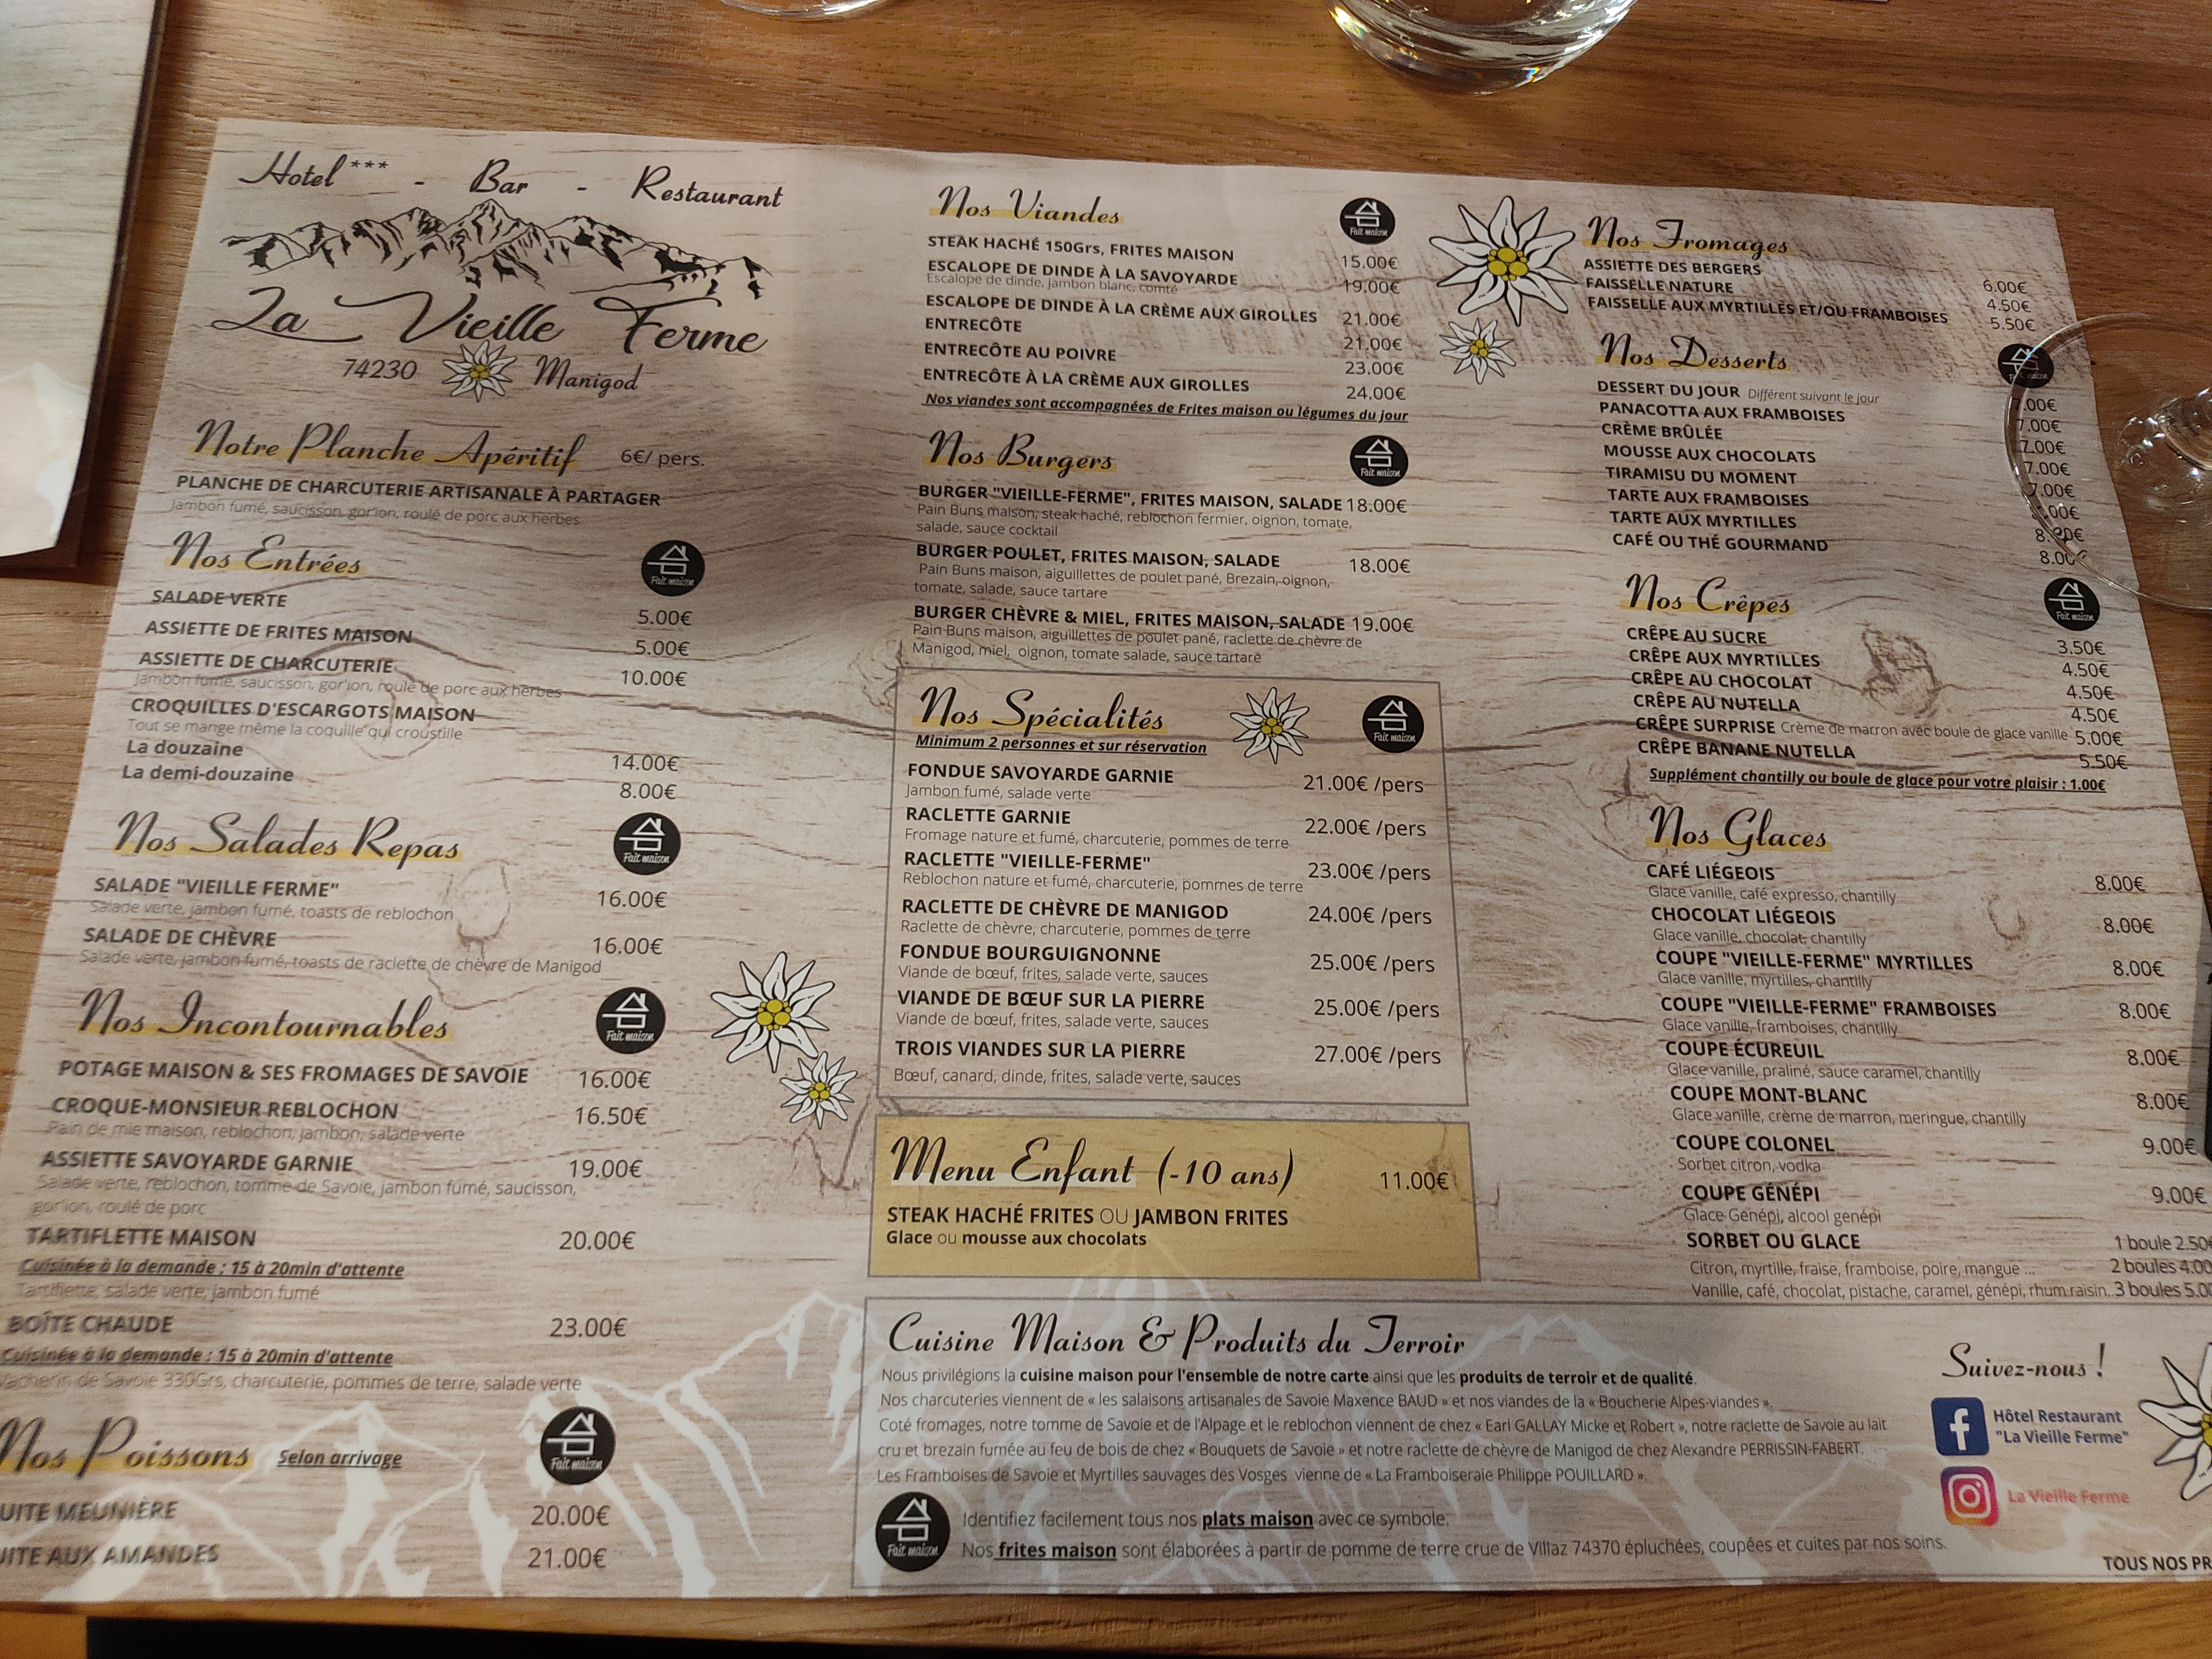 Hotel*** - Bar - Restaurant
La Vieille Ferme
74230 Manigod
Notre Planche Apéritif 6€/ pers.
PLANCHE DE CHARCUTERIE ARTISANALE À PARTAGER
Jambon fumé, saucisson, gor'ion, roulé de porc aux herbes
Nos Entrées Fait maison
SALADE VERTE 5.00€
ASSIETTE DE FRITES MAISON 5.00€
ASSIETTE DE CHARCUTERIE 10.00€
Jambon fumé, saucisson, gor'ion, roulé de porc aux herbes
CROQUILLES D'ESCARGOTS MAISON
Tout se mange même la coquille qui croustille
La douzaine 14.00€
La demi-douzaine 8.00€
Nos Salades Repas Fait maison
SALADE "VIEILLE FERME" 16.00€
Salade verte, jambon fumé, toasts de reblochon
SALADE DE CHÈVRE 16.00€
Salade verte, jambon fumé, toasts de raclette de chèvre de Manigod
Nos Incontournables Fait maison
POTAGE MAISON & SES FROMAGES DE SAVOIE 16.00€
CROQUE-MONSIEUR REBLOCHON 16.50€
Pain de mie maison, reblochon, jambon, salade verte
ASSIETTE SAVOYARDE GARNIE 19.00€
Salade verte, reblochon, tomme de Savoie, jambon fumé, saucisson,
gor'ion, roulé de porc
TARTIFLETTE MAISON 20.00€
Cuisinée à la demande : 15 à 20min d'attente
Tartiflette, salade verte, jambon fumé
BOÎTE CHAUDE 23.00€
Cuisinée à la demande : 15 à 20min d'attente
Vacherin de Savoie 330Grs, charcuterie, pommes de terre, salade verte
Nos Poissons Selon arrivage Fait maison
UITE MEUNIÈRE 20.00€
UITE AUX AMANDES 21.00€
Nos Viandes Fait maison
STEAK HACHÉ 150Grs, FRITES MAISON 15.00€
ESCALOPE DE DINDE À LA SAVOYARDE 19.00€
Escalope de dinde, jambon blanc, comté
ESCALOPE DE DINDE À LA CRÈME AUX GIROLLES 21.00€
ENTRECÔTE 21.00€
ENTRECÔTE AU POIVRE 23.00€
ENTRECÔTE À LA CRÈME AUX GIROLLES 24.00€
Nos viandes sont accompagnées de Frites maison ou légumes du jour
Nos Burgers Fait maison
BURGER "VIEILLE-FERME", FRITES MAISON, SALADE 18.00€
Pain Buns maison, steak haché, reblochon fermier, oignon, tomate,
salade, sauce cocktail
BURGER POULET, FRITES MAISON, SALADE 18.00€
Pain Buns maison, aiguillettes de poulet pané, Brezain, oignon,
tomate, salade, sauce tartare
BURGER CHÈVRE & MIEL, FRITES MAISON, SALADE 19.00€
Pain Buns maison, aiguillettes de poulet pané, raclette de chèvre de
Manigod, miel, oignon, tomate salade, sauce tartare
Nos Spécialités Fait maison
Minimum 2 personnes et sur réservation
FONDUE SAVOYARDE GARNIE 21.00€ /pers
Jambon fumé, salade verte
RACLETTE GARNIE 22.00€ /pers
Fromage nature et fumé, charcuterie, pommes de terre
RACLETTE "VIEILLE-FERME" 23.00€ /pers
Reblochon nature et fumé, charcuterie, pommes de terre
RACLETTE DE CHÈVRE DE MANIGOD 24.00€ /pers
Raclette de chèvre, charcuterie, pommes de terre
FONDUE BOURGUIGNONNE 25.00€ /pers
Viande de bœuf, frites, salade verte, sauces
VIANDE DE BŒUF SUR LA PIERRE 25.00€ /pers
Viande de bœuf, frites, salade verte, sauces
TROIS VIANDES SUR LA PIERRE 27.00€ /pers
Bœuf, canard, dinde, frites, salade verte, sauces
Menu Enfant (-10 ans) 11.00€
STEAK HACHÉ FRITES OU JAMBON FRITES
Glace ou mousse aux chocolats
Nos Fromages
ASSIETTE DES BERGERS 6.00€
FAISSELLE NATURE 4.50€
FAISSELLE AUX MYRTILLES ET/OU FRAMBOISES 5.50€
Nos Desserts
DESSERT DU JOUR Différent suivant le jour .00€
PANACOTTA AUX FRAMBOISES 7.00€
CRÈME BRÛLÉE 7.00€
MOUSSE AUX CHOCOLATS 7.00€
TIRAMISU DU MOMENT 7.00€
TARTE AUX FRAMBOISES .00€
TARTE AUX MYRTILLES 8.00€
CAFÉ OU THÉ GOURMAND 8.00
Nos Crêpes Fait maison
CRÊPE AU SUCRE 3.50€
CRÊPE AUX MYRTILLES 4.50€
CRÊPE AU CHOCOLAT 4.50€
CRÊPE AU NUTELLA 4.50€
CRÊPE SURPRISE Crème de marron avec boule de glace vanille 5.00€
CRÊPE BANANE NUTELLA 5.50€
Supplément chantilly ou boule de glace pour votre plaisir : 1.00€
Nos Glaces
CAFÉ LIÉGEOIS 8.00€
Glace vanille, café expresso, chantilly
CHOCOLAT LIÉGEOIS 8.00€
Glace vanille, chocolat, chantilly
COUPE "VIEILLE-FERME" MYRTILLES 8.00€
Glace vanille, myrtilles, chantilly
COUPE "VIEILLE-FERME" FRAMBOISES 8.00€
Glace vanille, framboises, chantilly
COUPE ÉCUREUIL 8.00€
Glace vanille, praliné, sauce caramel, chantilly
COUPE MONT-BLANC 8.00€
Glace vanille, crème de marron, meringue, chantilly
COUPE COLONEL 9.00€
Sorbet citron, vodka
COUPE GÉNÉPI 9.00€
Glace Genépi, alcool genépi
SORBET OU GLACE 1 boule 2.50€
Citron, myrtille, fraise, framboise, poire, mangue ... 2 boules 4.00
Vanille, café, chocolat, pistache, caramel, génépi, rhum raisin.. 3 boules 5.00
Cuisine Maison & Produits du Terroir
Nous privilégions la cuisine maison pour l'ensemble de notre carte ainsi que les produits de terroir et de qualité.
Nos charcuteries viennent de « les salaisons artisanales de Savoie Maxence BAUD » et nos viandes de la « Boucherie Alpes-viandes ».
Coté fromages, notre tomme de Savoie et de l'Alpage et le reblochon viennent de chez « Earl GALLAY Micke et Robert », notre raclette de Savoie au lait
cru et brezain fumée au feu de bois de chez « Bouquets de Savoie » et notre raclette de chèvre de Manigod de chez Alexandre PERRISSIN-FABERT.
Les Framboises de Savoie et Myrtilles sauvages des Vosges vienne de « La Framboiseraie Philippe POUILLARD ».
Fait maison
Identifiez facilement tous nos plats maison avec ce symbole.
Nos frites maison sont élaborées à partir de pomme de terre crue de Villaz 74370 épluchées, coupées et cuites par nos soins.
Suivez-nous !
Hôtel Restaurant
"La Vieille Ferme"
La Vieille Ferme
TOUS NOS PR